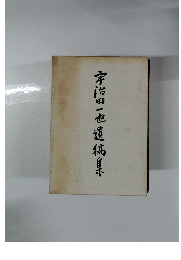 宇治田一也遺稿集